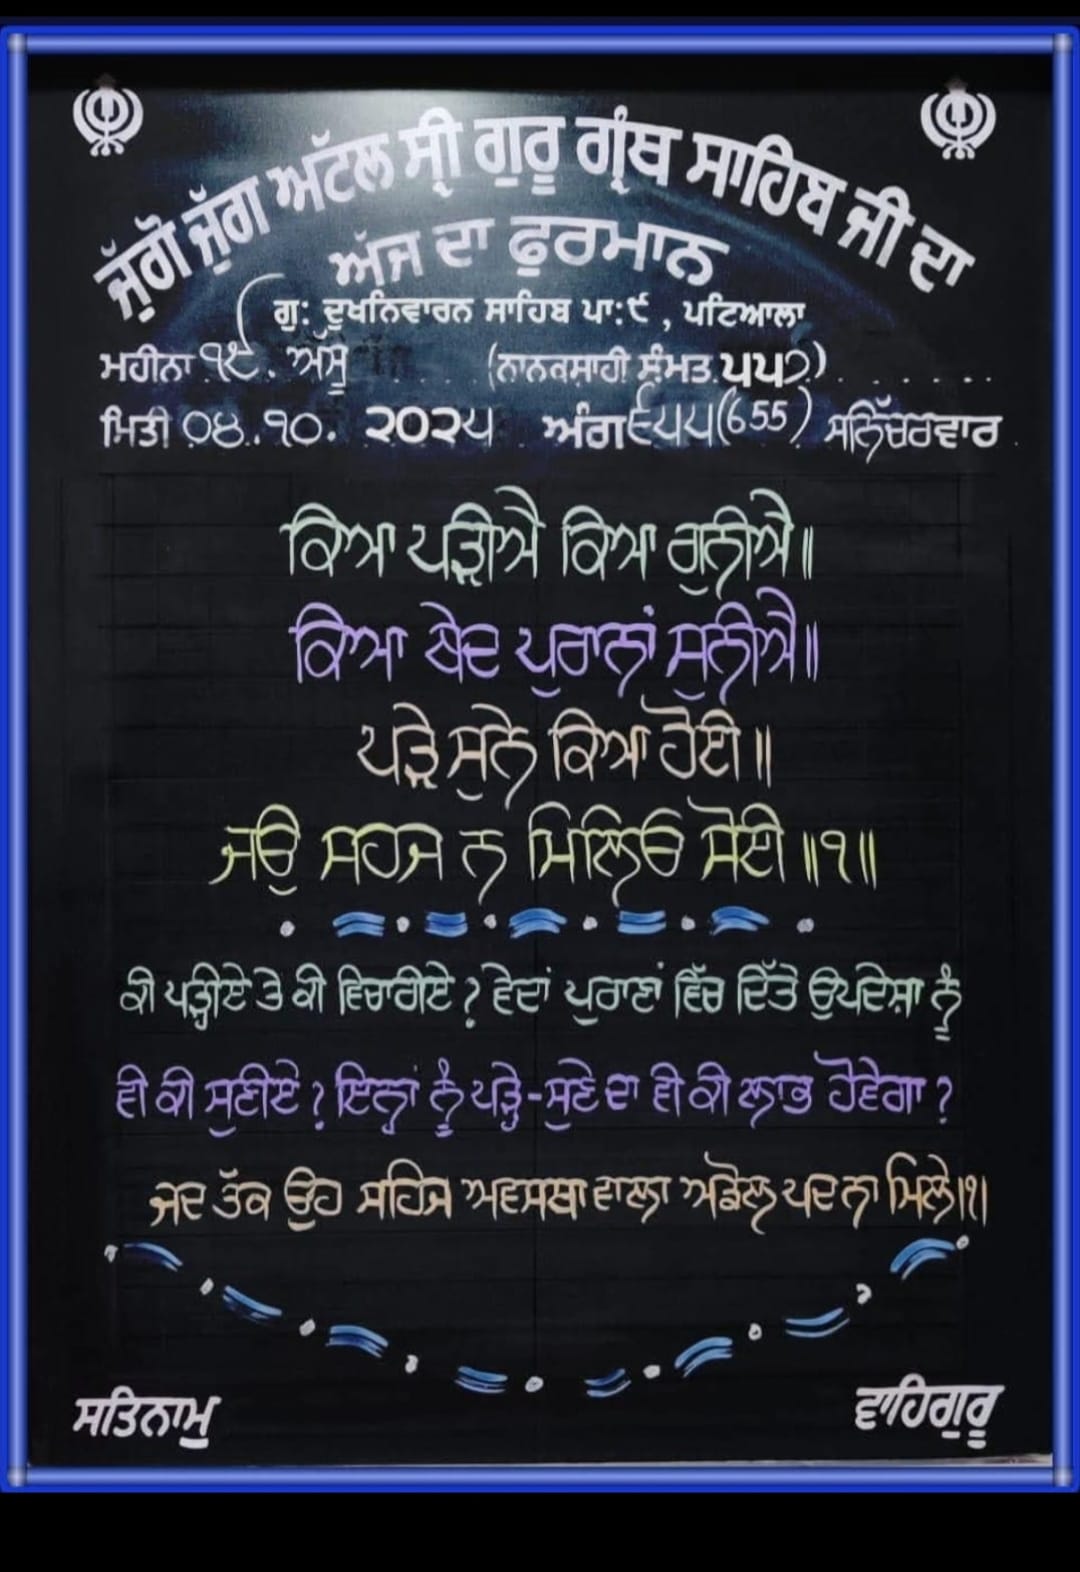 ਜੁੱਗੋ ਜੁੱਗ ਅੱਟਲ ਸ੍ਰੀ ਗੁਰੂ ਗ੍ਰੰਥ ਸਾਹਿਬ ਜੀ ਦਾ
ਅੱਜ ਦਾ ਫੁਰਮਾਨ
ਗੁ: ਦੁਖਨਿਵਾਰਨ ਸਾਹਿਬ ਪਾ:੯ , ਪਟਿਆਲਾ
ਮਹੀਨਾ ੧੯. ਅੱਸੂ (ਨਾਨਕਸ਼ਾਹੀ ਸੰਮਤ ੫੫੭)
ਮਿਤੀ ੦੪.੧੦. ੨੦੨੫ ਅੰਗ ੬੫੫(655) ਸਨਿੱਚਰਵਾਰ
ਕਿਆ ਪੜੀਐ ਕਿਆ ਗੁਨੀਐ॥
ਕਿਆ ਬੇਦ ਪੁਰਾਨਾਂ ਸੁਨੀਐ॥
ਪੜੇ ਸੁਨੇ ਕਿਆ ਹੋਈ॥
ਜਉ ਸਹਜ ਨ ਮਿਲਿਓ ਸੋਈ॥੧॥
ਕੀ ਪੜ੍ਹੀਏ ਤੇ ਕੀ ਵਿਚਾਰੀਏ ? ਵੇਦਾਂ ਪੁਰਾਣਾਂ ਵਿੱਚ ਦਿੱਤੇ ਉਪਦੇਸ਼ਾ ਨੂੰ
ਵੀ ਕੀ ਸੁਣੀਏ ? ਇਨ੍ਹਾਂ ਨੂੰ ਪੜ੍ਹੇ-ਸੁਣੇ ਦਾ ਵੀ ਕੀ ਲਾਭ ਹੋਵੇਗਾ ?
ਜਦ ਤੱਕ ਉਹ ਸਹਿਜ ਅਵਸਥਾ ਵਾਲਾ ਅਡੋਲ ਪਦ ਨਾ ਮਿਲੇ।੧।
ਸਤਿਨਾਮੁ ਵਾਹਿਗੁਰੂ